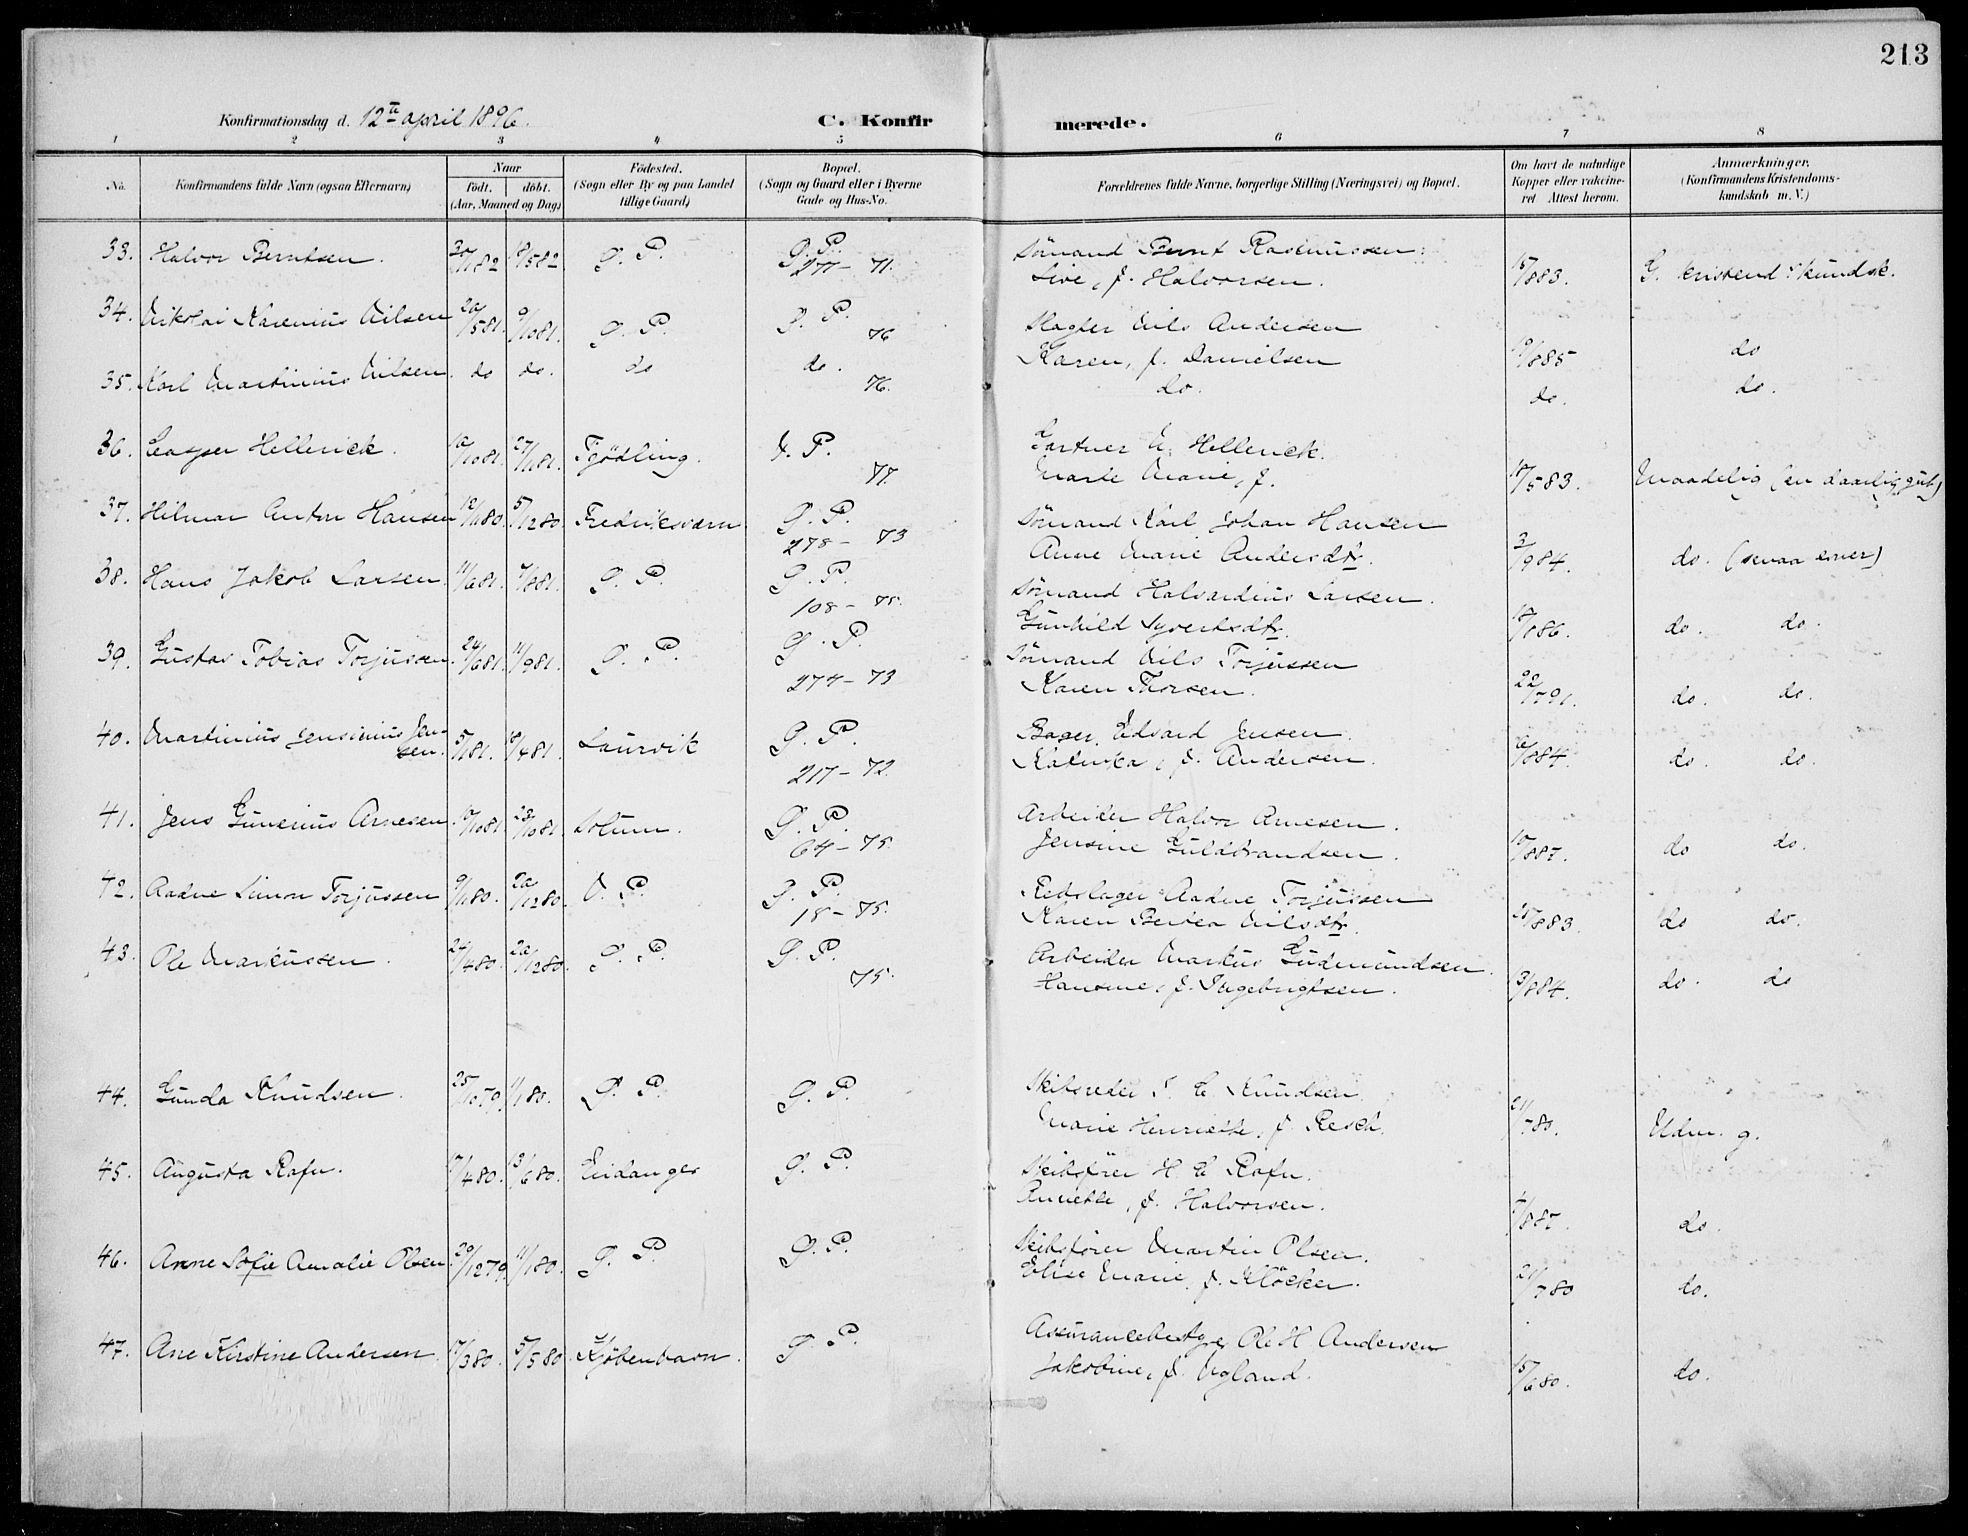 213
Konfirmationsdag d. 12te april 1896.
C. Konfirmerede.
1 2 3 4 5 6 7 8
No.
Konfirmandens fulde Navn (ogsaa Efternavn)
Naar
födt. döbt.
(Aar, Maaned og Dag)
Födested.
(Sogn eller By og paa Landet
tillige Gaard)
Bopæl.
(Sogn og Gaard eller i Byerne
Gade og Hus-No.
Forældrenes fulde Navne, borgerlige Stilling (Næringsvei) og Bopæl.
Om havt de naturlige
Kopper eller vakcine-
ret. Attest herom.
Anmærkninger.
(Konfirmandens Kristendoms-
kundskab m. V.)
33. Halvor Berntsen. 30/1 82 18/5 82 Ø. P. Ø. P. 277- 71. Sömand Bernt Rasmussen. 15/8 83. G. kristend. kundsk.
Sive, f. Halvorsen.
34. Nikolai Karenius Nilsen 20/5 81. 9/10 81. Ø. P. Ø. P. 76 Slagter Nils Andersen
Karen, f. Danielsen 19/8 85 do
35. Karl Martinius Nilsen. do do. do do. 76. do. do. do.
36. Casper Hellerick. 10/10 81. 27/11 81. Tjödling. V. P. 77. Gartner N. Hellerick.
Marte Marie, f. 18/5 83. Maadelig (en daarlig gut)
37. Hilmar Anton Hansen 12/11 80. 5/12 80. Fredriksværn Ø. P. 278- 73 Sömand Karl Johan Hansen
Anne Marie Andersdtr. 3/9 84. do. (svaa evner)
38. Hans Jakob Larsen. 11/6 81. 7/8 81. Ø. P. Ø. P. 108- 75. Sömand Halvardius Larsen.
Gunhild Syvertsdtr. 18/8 86. do. do.
39. Gustav Tobias Torjussen. 24/6 81. 11/9 81. Ø. P. Ø. P. 274- 73 Sömand Nils Torjussen
Karen Thorsen. 22/7 91. do. do.
40. Martinius Jensinius Jensen. 5/1 81. 18/4 81. Laurvik Ø. P. 217- 72. Bager Edvard Jensen.
Katinka, f. Andersen. 6/8 84. do. do.
41. Jens Gunerius Arnesen. 10/10 81. 23/10 81. Solum. Ø. P. 64- 75. Arbeider Halvor Arnesen.
Jensine Guldbrandsen. 10/8 87. do do.
42. Aadne Simon Torjussen 9/11 80. 20/12 80. V. P. Ø. P. 18- 75. Rebslager Aadne Torjussen
Karen Bertea Nilsdtr. 25/8 83. do do.
43. Ole Markussen. 24/4 80. 20/12 80. Ø. P. Ø. P. 75. Arbeider Markus Gudmundsen.
Hansine, f. Ingebrigtsen. 3/8 84. do. do
44. Gunda Knudsen. 25/10 79. 11/1 80. Ø. P. Ø. P. Skibsreder C. Knudsen.
Marie Henriette, f. Resch. 21/7 80. Udm. g.
45. Augusta Rafn. 17/4 80. 13/6 80. Eidanger Ø. P. Skibsförer H. C. Rafn.
Annette, f. Halvorsen. 4/8 87. do.
46. Anne Sofie Amalie Olsen 20/12 79. 11/1 80. Ø. P. Ø. P. Skibsförer Martin Olsen.
Elise Marie f. Klöcker. 21/7 80 do.
47. Ane Kirstine Andersen. 17/3 80. 5/5 80 Kjöbenhavn. Ø P. Assurancebestyr. Ole H Andersen
Jakobine, f. Ugland. 15/6 80. do.